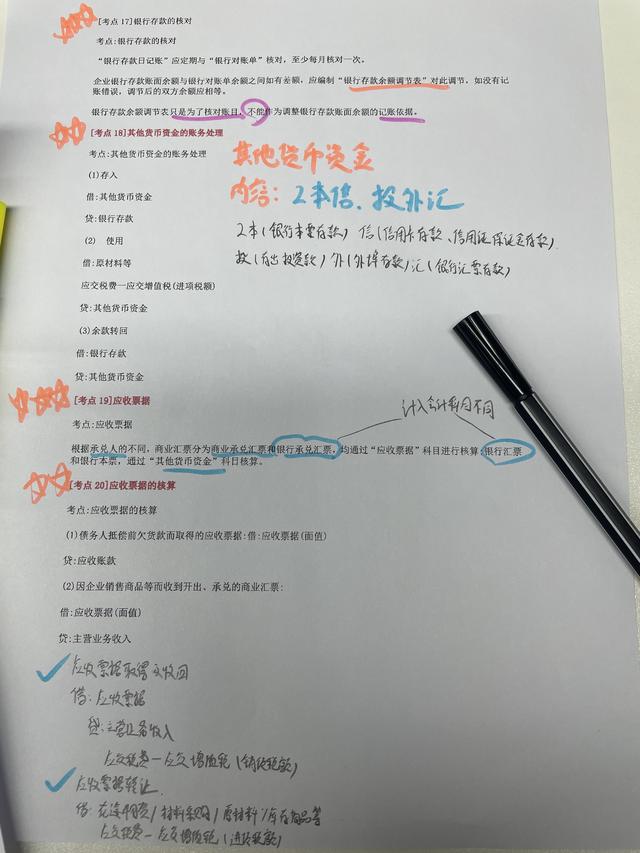 [考点17]银行存款的核对
考点:银行存款的核对
“银行存款日记账”应定期与“银行对账单”核对，至少每月核对一次。
企业银行存款账面余额与银行对账单余额之间如有差额，应编制“银行存款余额调节表”对此调节，如没有记
账错误，调节后的双方余额应相等。
银行存款余额调节表只是为了核对账目，不能作为调整银行存款账面余额的记账依据。
[考点18]其他货币资金的账务处理
考点:其他货币资金的账务处理
其他货币资金
(1)存入
内容：2本信、投外汇
借:其他货币资金
贷:银行存款
2本(银行本票存款) 信(信用卡存款、信用证保证金存款)
(2) 使用
投(存出投资款) 外(外埠存款) 汇(银行汇票存款)
借:原材料等
应交税费一应交增值税(进项税额)
贷:其他货币资金
(3)余款转回
借:银行存款
贷:其他货币资金
[考点19]应收票据
计入会计科目不同
考点:应收票据
根据承兑人的不同，商业汇票分为商业承兑汇票和银行承兑汇票，均通过“应收票据”科目进行核算;银行汇票
和银行本票，通过“其他货币资金”科目核算。
[考点20]应收票据的核算
考点:应收票据的核算
(1)债务人抵偿前欠货款而取得的应收票据:借:应收票据(面值)
贷:应收账款
(2)因企业销售商品等而收到开出、承兑的商业汇票:
借:应收票据(面值)
贷:主营业务收入
应收票据取得及收回
借：应收票据
贷：主营业务收入
应交税费一应交增值税(销项税额)
应收票据转让
借：在途物资/材料采购/原材料/库存商品等
应交税费一应交增值税(进项税额)